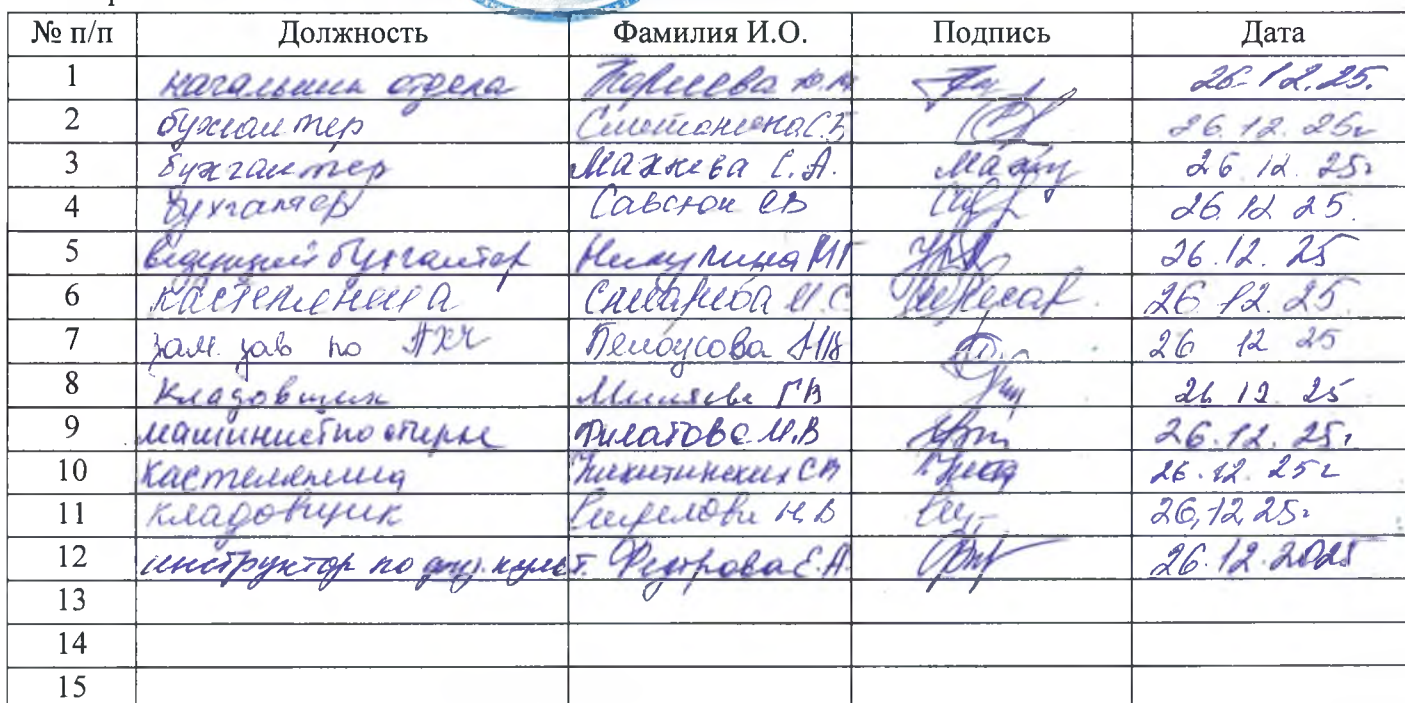 № п/п Должность Фамилия И.О. Подпись Дата
1 начальник отдела 26.12.25.
2 бухгалтер 26.12.25г
3 бухгалтер Махнева С.А. 26.12.25г
4 бухгалтер Савсюк СВ 26.12.25.
5 ведущий бухгалтер Никулина МГ 26.12.25
6 кастелянша 26.12.25
7 зам. зав по АХЧ Белоусова 26 12 25
8 кладовщик ГВ 26.12.25
9 машинист по стирке Филатова М.В 26.12.25г
10 кастелянша Никитинских СВ 26.12.25г
11 кладовщик Н.В 26,12,25г
12 инструктор по физ. культ. Федорова Е.А. 26.12.2025
13
14
15